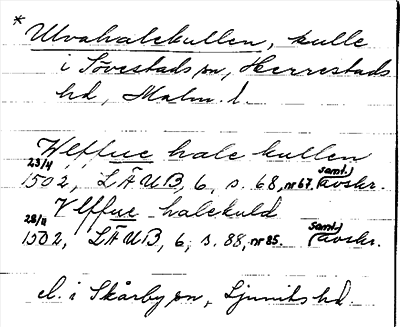 * Ulvahalekullen, kulle
i Sövestads sn, Herrestads
hd, Malm. l.
Wlffue hale kullen
23/4 1502, LÄUB, 6, s. 68, nr 67. (samt.) avskr.
Vlffue halekuld
28/11 1502, LÄUB, 6, s. 88, nr 85. (samt.) avskr.
el. i Skårby sn, Ljunits hd.